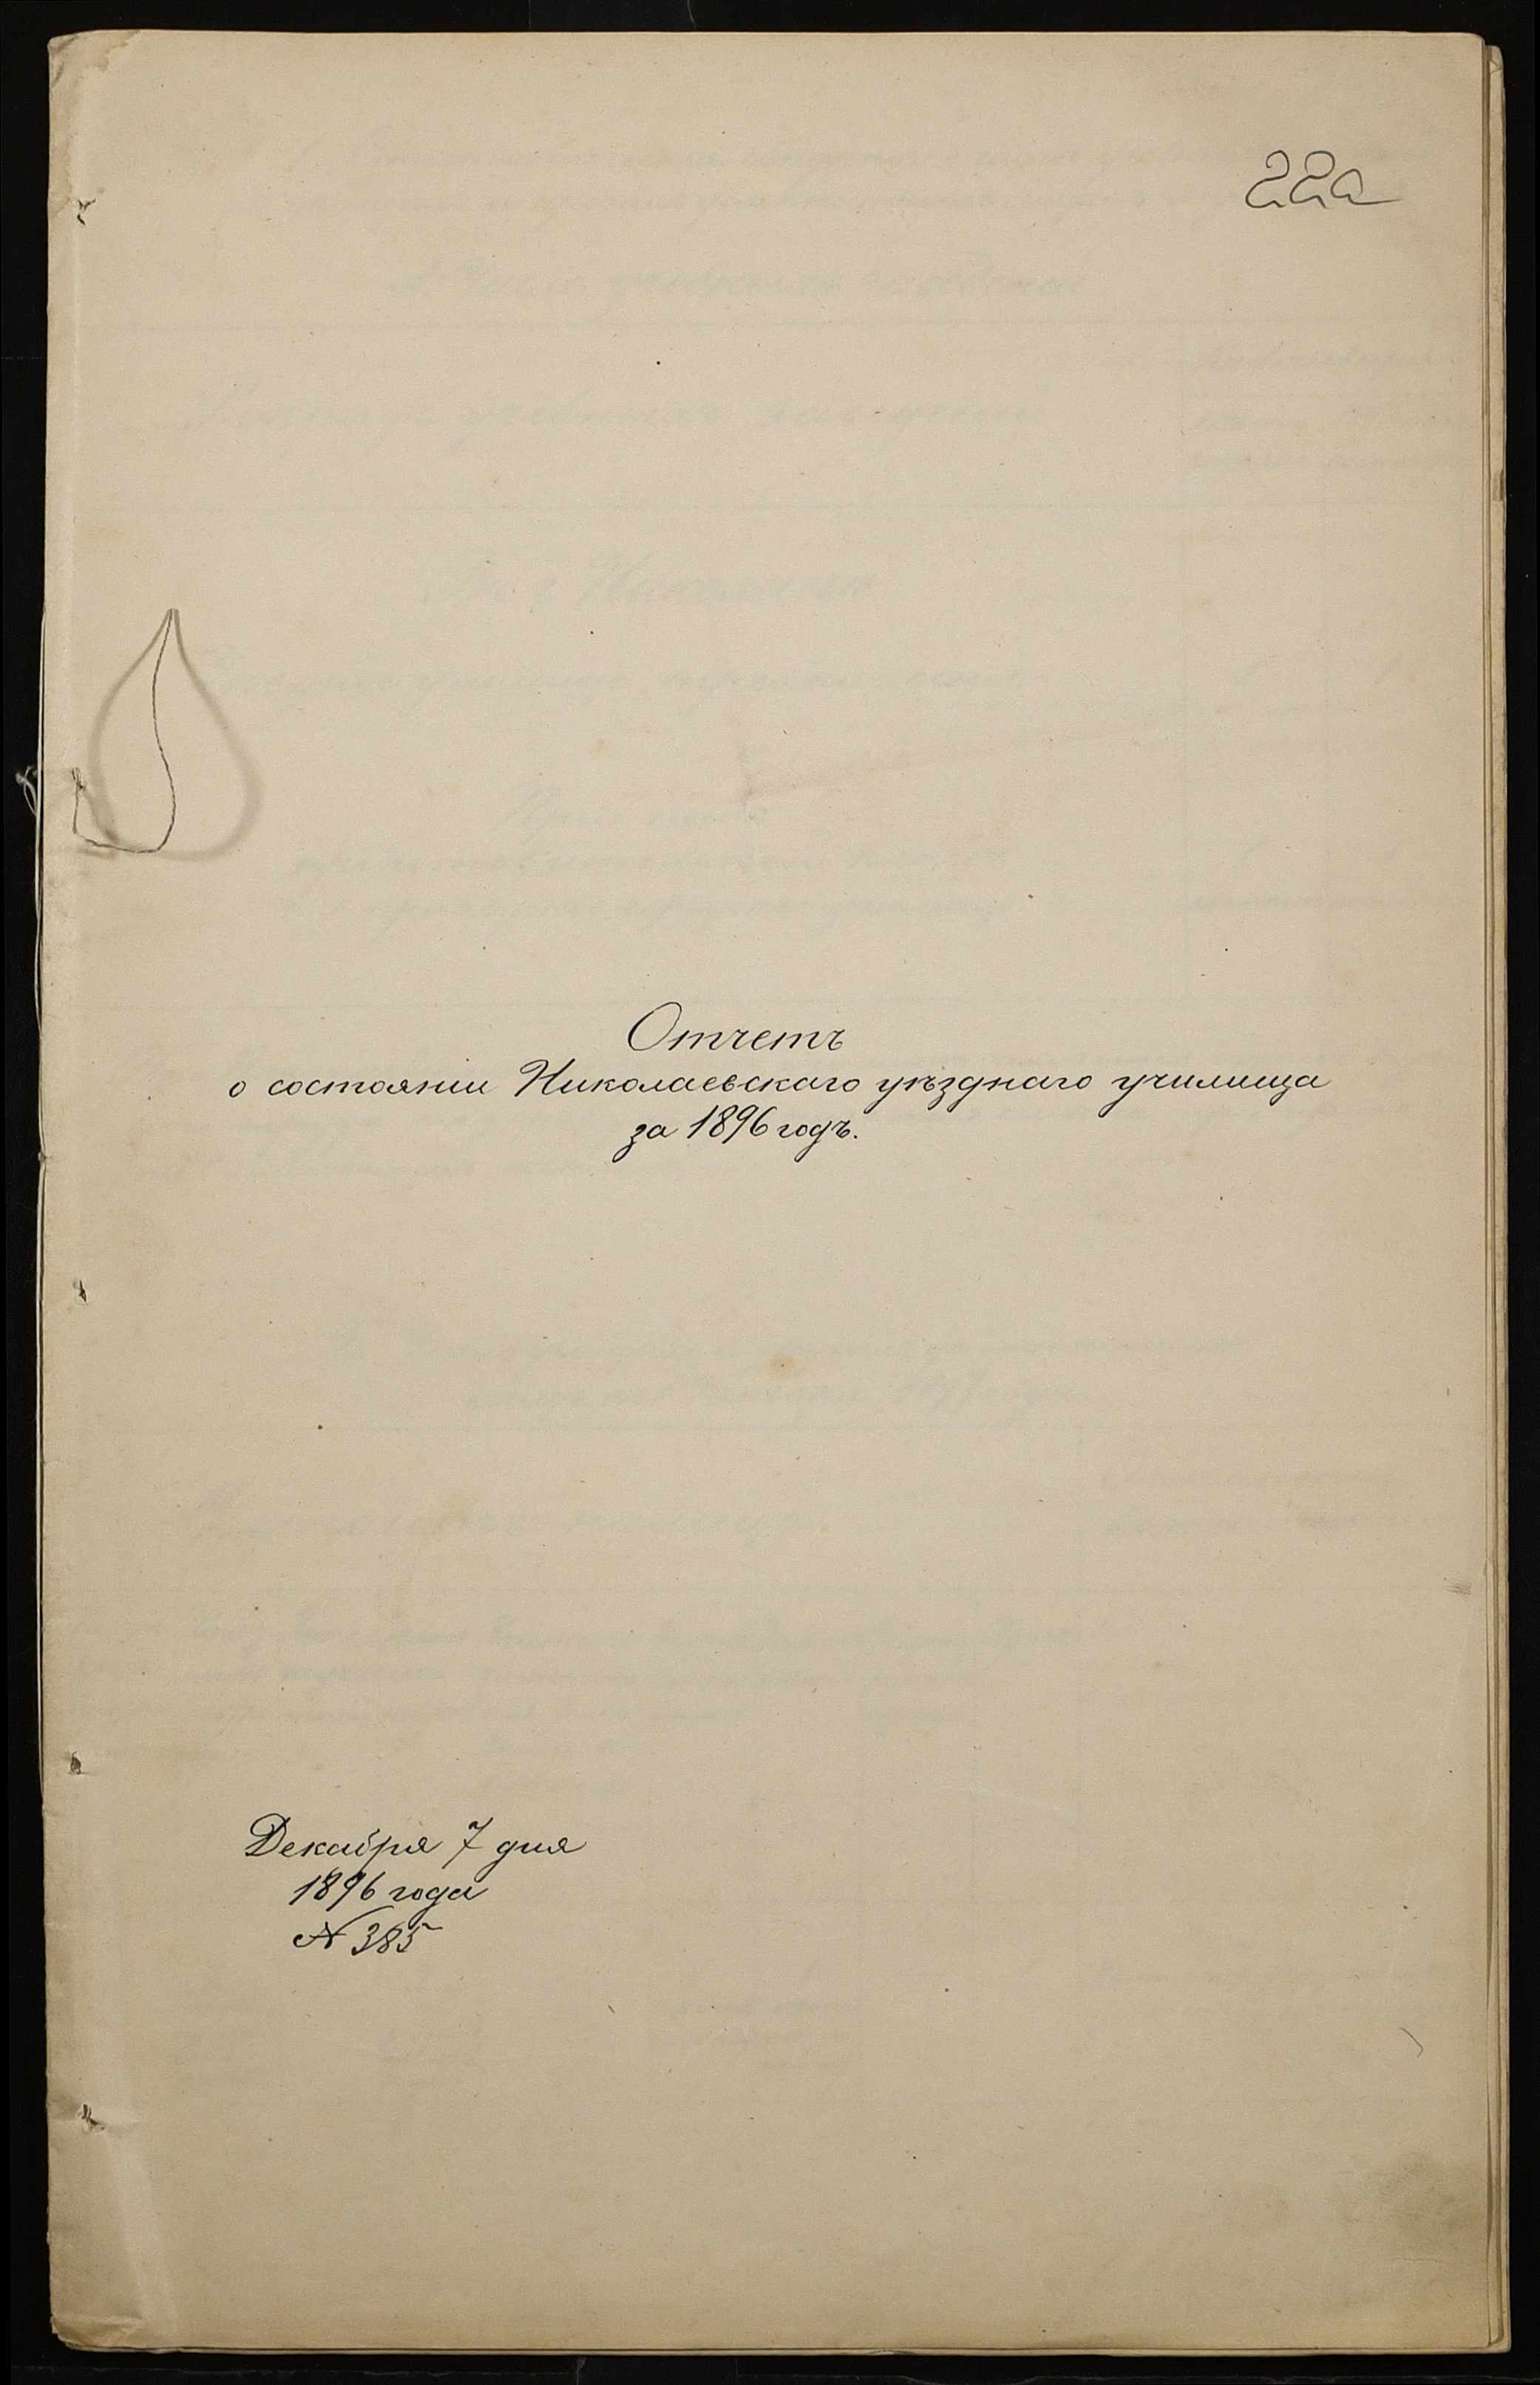 22а
Отчетъ
о состоянии Николаевскаго уѣзднаго училища
за 1896 годъ.
Декабря 7 дня
1896 года
№ 385